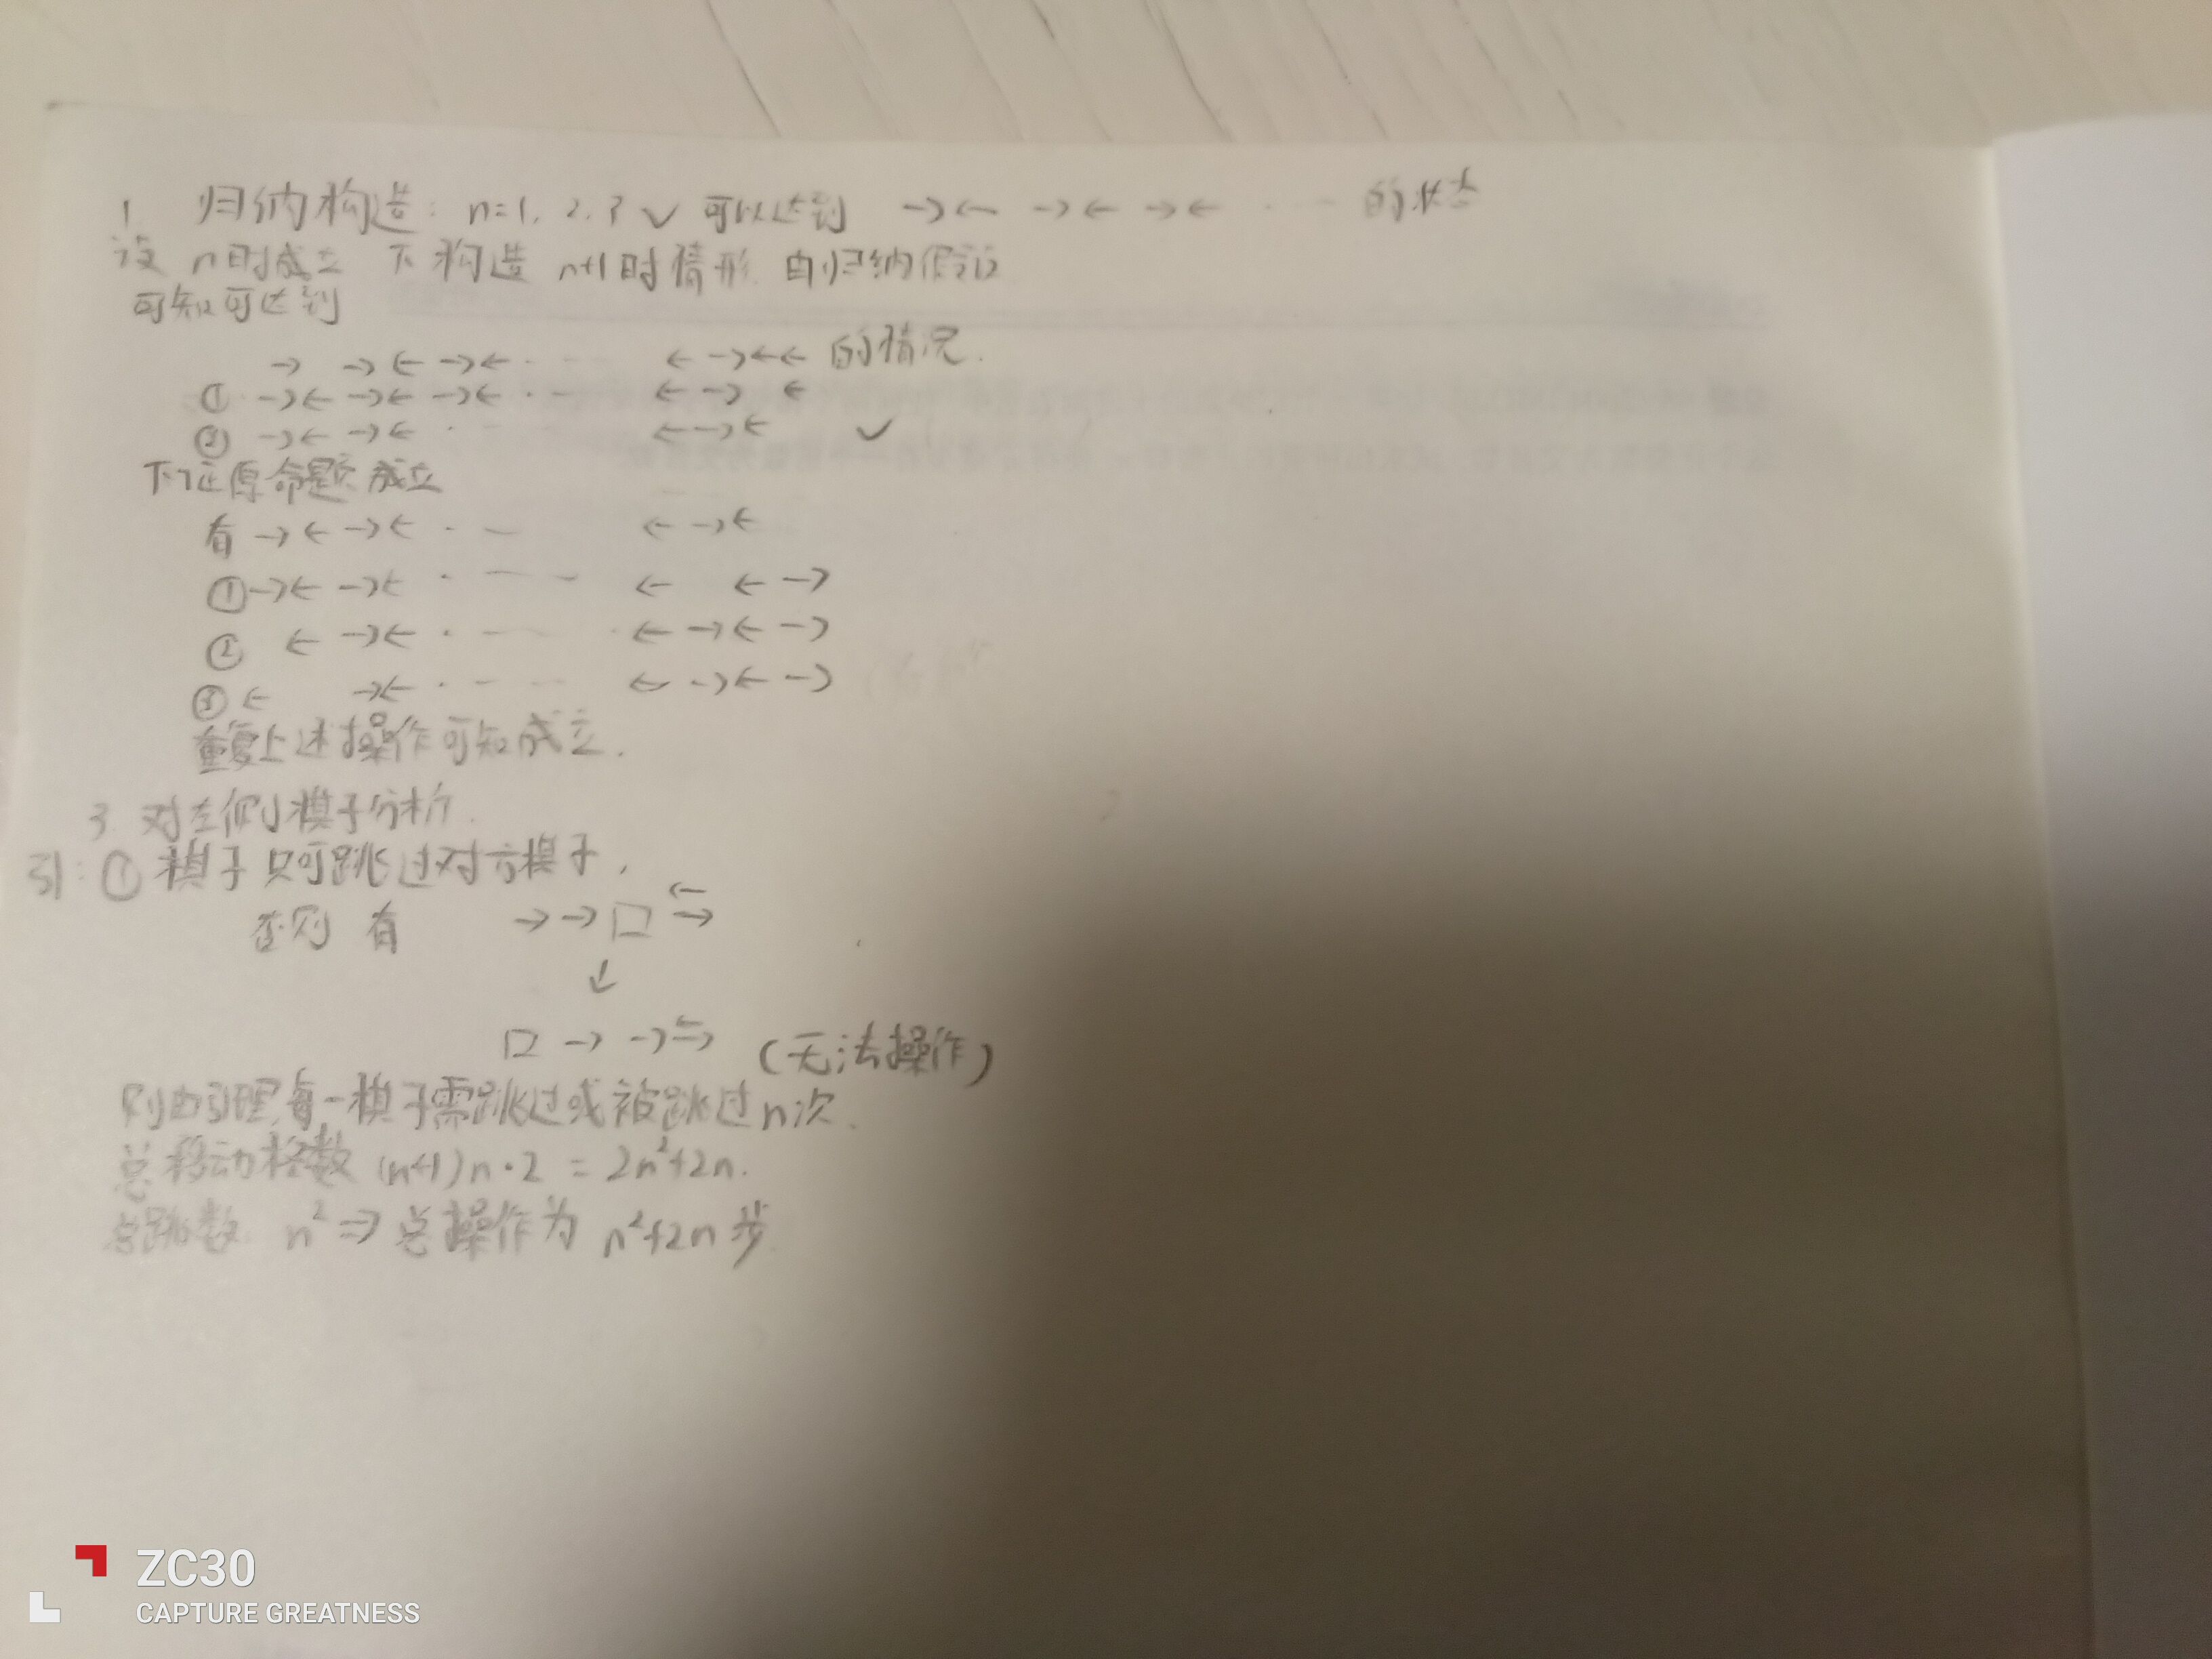 1. 归纳构造: n=1, 2, 3 ✓ 可以达到 →← →← →← · — 的状态
设 n时成立 下构造 n+1时情形 由归纳假设
可知可达到
→ →← →← · — ← →←← 的情况.
① →← →← →← · — ← → ←
② →← →← · — ←→← ✓
下证原命题成立
有 →← →← · — ← →←
① →← →← · — — ← ← →
② ← →← · — ← →← →
③ ← →← · — — ← →← →
重复上述操作可知成立.
3. 对左侧棋子分析.
引: ① 棋子只可跳过对方棋子,
否则 有 → → □ ←→
↓
□ → → ←→ (无法操作)
则由引理,每一棋子需跳过或被跳过n次.
总移动格数 (n+1)n·2 = 2n²+2n.
总跳数 n² ⇒ 总操作为 n²+2n 步
ZC30
CAPTURE GREATNESS